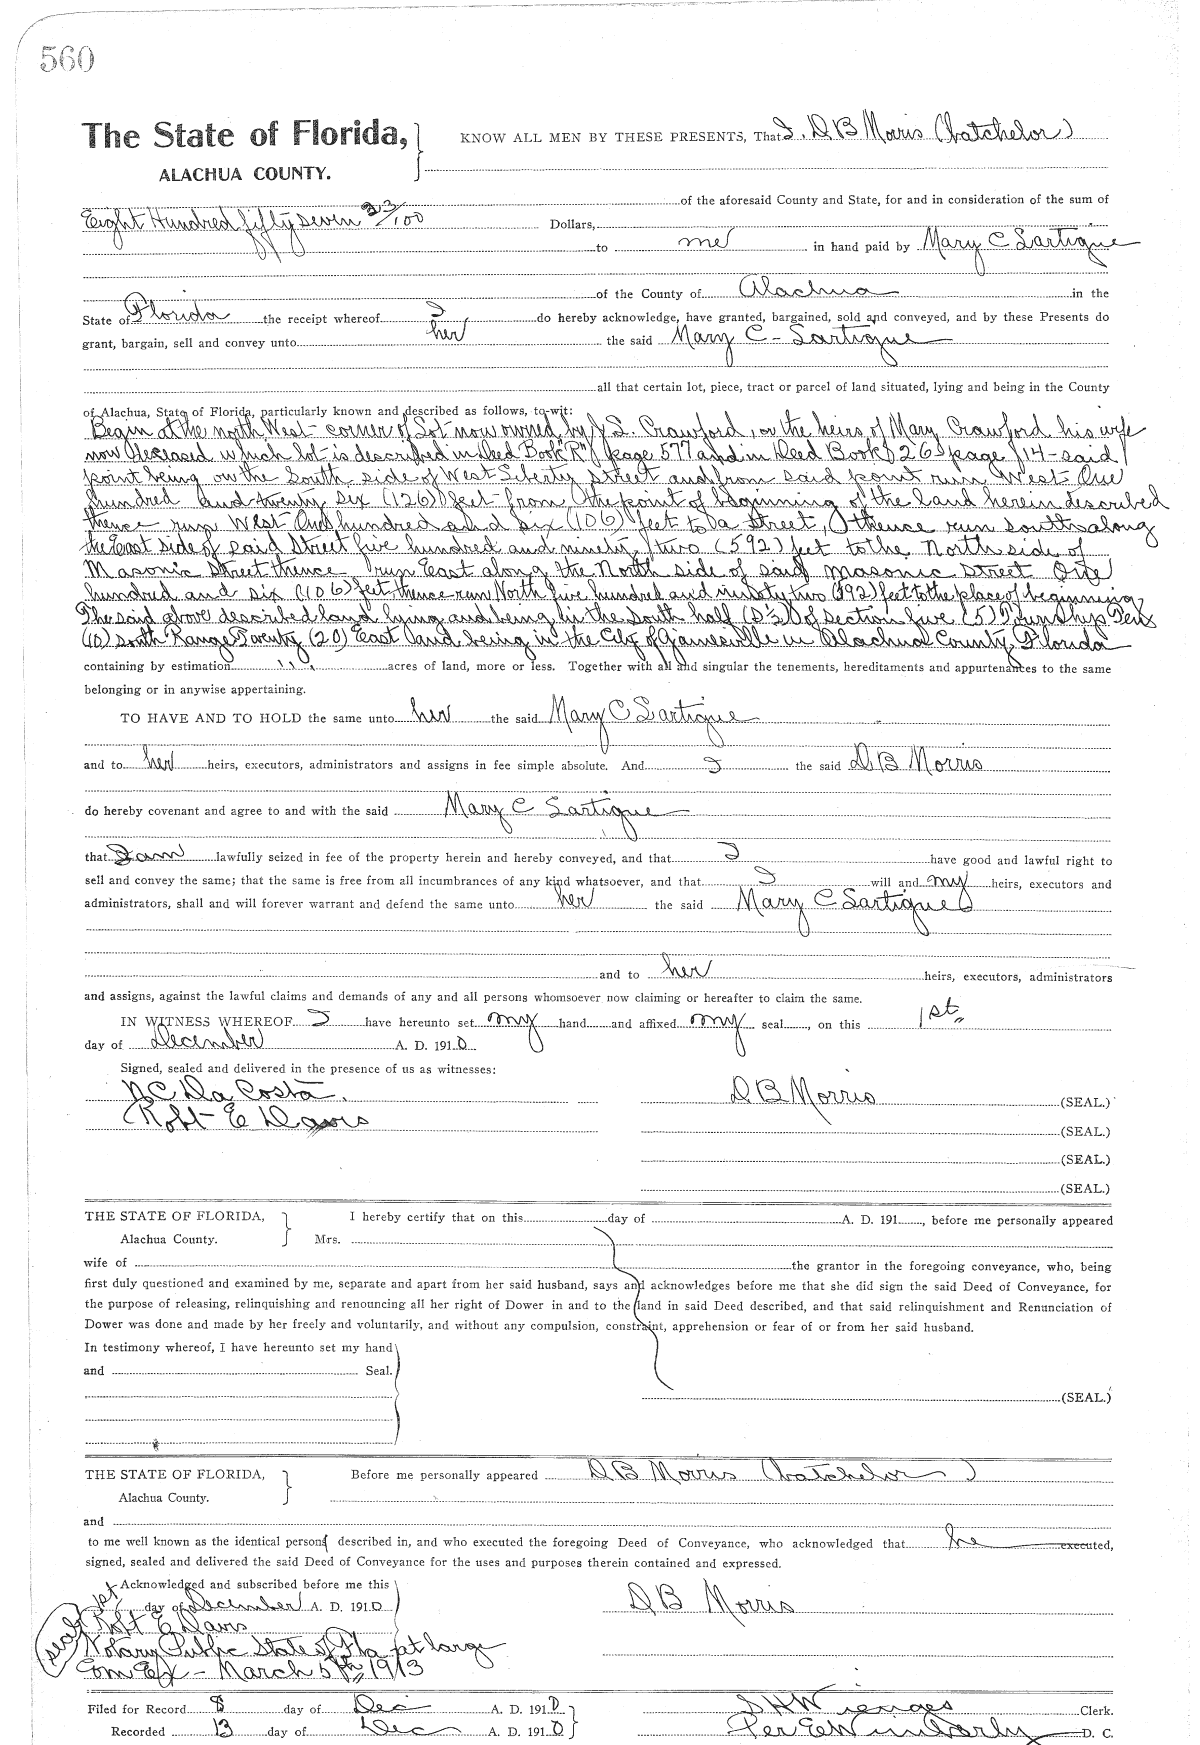 560
The State of Florida,
ALACHUA COUNTY.
KNOW ALL MEN BY THESE PRESENTS, That I, D B Morris (batchelor)
of the aforesaid County and State, for and in consideration of the sum of
Eight Hundred fifty seven 23/100 Dollars,
to me in hand paid by Mary C Lartigue
of the County of Alachua in the
State of Florida the receipt whereof I do hereby acknowledge, have granted, bargained, sold and conveyed, and by these Presents do
grant, bargain, sell and convey unto her the said Mary C - Lartigue
all that certain lot, piece, tract or parcel of land situated, lying and being in the County
of Alachua, State of Florida, particularly known and described as follows, to-wit:
Begin at the north West corner of Lot now owned by J. L. Crawford, or the heirs of Mary Crawford his wife
now deceased which lot is described in Deed Book "R" page 577 and in Deed Book 26 page 14 - said
point being on the South side of West Liberty Street and from said point run West One
hundred and twenty six (126) feet from the point of beginning of the land herein described
thence run West One hundred and six (106) feet to a Street, thence run south along
the East side of said Street five hundred and ninety two (592) feet to the North side of
Masonic Street thence run East along the North side of said Masonic Street One
hundred and six (106) feet, thence run North five hundred and ninety two (592) feet to the place of beginning
The said above described land lying and being in the South half (S ½) of section five (5) Township Ten
(10) South Range Twenty (20) East and being in the City of Gainesville in Alachua County, Florida
containing by estimation " " acres of land, more or less. Together with all and singular the tenements, hereditaments and appurtenances to the same
belonging or in anywise appertaining.
TO HAVE AND TO HOLD the same unto her the said Mary C Lartigue
and to her heirs, executors, administrators and assigns in fee simple absolute. And I the said D B Morris
do hereby covenant and agree to and with the said Mary C Lartigue
that I am lawfully seized in fee of the property herein and hereby conveyed, and that I have good and lawful right to
sell and convey the same; that the same is free from all incumbrances of any kind whatsoever, and that I will and my heirs, executors and
administrators, shall and will forever warrant and defend the same unto her the said Mary C Lartigue
and to her heirs, executors, administrators
and assigns, against the lawful claims and demands of any and all persons whomsoever now claiming or hereafter to claim the same.
IN WITNESS WHEREOF I have hereunto set my hand and affixed my seal, on this 1st
day of December A. D. 1910
Signed, sealed and delivered in the presence of us as witnesses:
B C Da Costa. D B Morris (SEAL.)
Robt E Davis (SEAL.)
(SEAL.)
(SEAL.)
THE STATE OF FLORIDA, I hereby certify that on this day of A. D. 191, before me personally appeared
Alachua County. Mrs.
wife of the grantor in the foregoing conveyance, who, being
first duly questioned and examined by me, separate and apart from her said husband, says and acknowledges before me that she did sign the said Deed of Conveyance, for
the purpose of releasing, relinquishing and renouncing all her right of Dower in and to the land in said Deed described, and that said relinquishment and Renunciation of
Dower was done and made by her freely and voluntarily, and without any compulsion, constraint, apprehension or fear of or from her said husband.
In testimony whereof, I have hereunto set my hand
and Seal.
(SEAL.)
THE STATE OF FLORIDA, Before me personally appeared D B Morris (batchelor)
Alachua County.
and
to me well known as the identical person described in, and who executed the foregoing Deed of Conveyance, who acknowledged that he executed,
signed, sealed and delivered the said Deed of Conveyance for the uses and purposes therein contained and expressed.
Acknowledged and subscribed before me this
1st day of December A. D. 1910 D B Morris
seal Robt E Davis
Notary Public State of Fla at large
Com Ex - March 5th 1913
Filed for Record 8 day of Dec A. D. 1910 S H Wienges Clerk.
Recorded 13 day of Dec A. D. 1910 Per E Wimberly D. C.